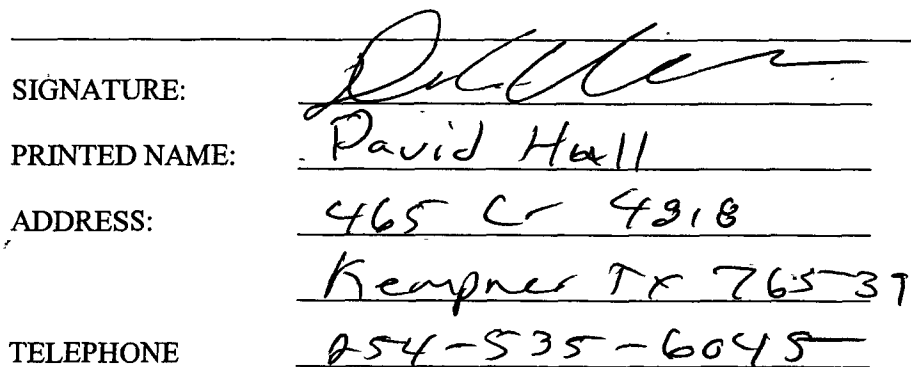 SIGNATURE:
PRINTED NAME: David Hall
ADDRESS: 465 Cr 4818
Kempner Tx 76539
TELEPHONE 254-535-6045